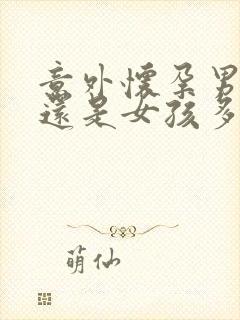 意外懷孕男
還是女孩多
萌仙